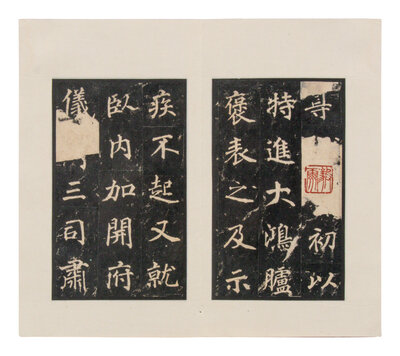 初以
特進大鴻臚
褒表之及示
疾不起又就
臥內加開府
儀三司肅